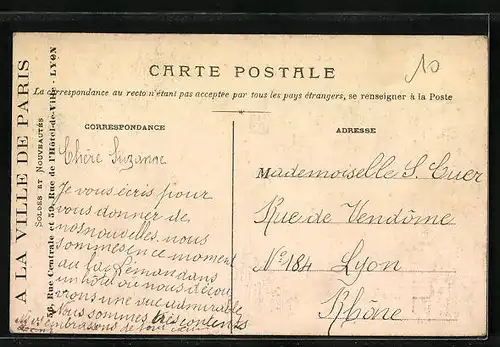 A LA VILLE DE PARIS
SOLDES ET NOUVEAUTÉS
56, Rue Centrale et 59, Rue de l'Hôtel-de-Ville - LYON
10
CARTE POSTALE
La correspondance au recto n'étant pas acceptée par tous les pays étrangers, se renseigner à la Poste
CORRESPONDANCE
Chère Suzanne
Je vous écris pour
vous donner de
nos nouvelles nous
sommes en ce moment
au lac Léman dans
un hôtel où nous décou
vrons une vue admirable
Nous sommes très contents
embrassons de tout
ADRESSE
Mademoiselle S. Cuer
Rue de Vendôme
N° 184 Lyon
Rhône